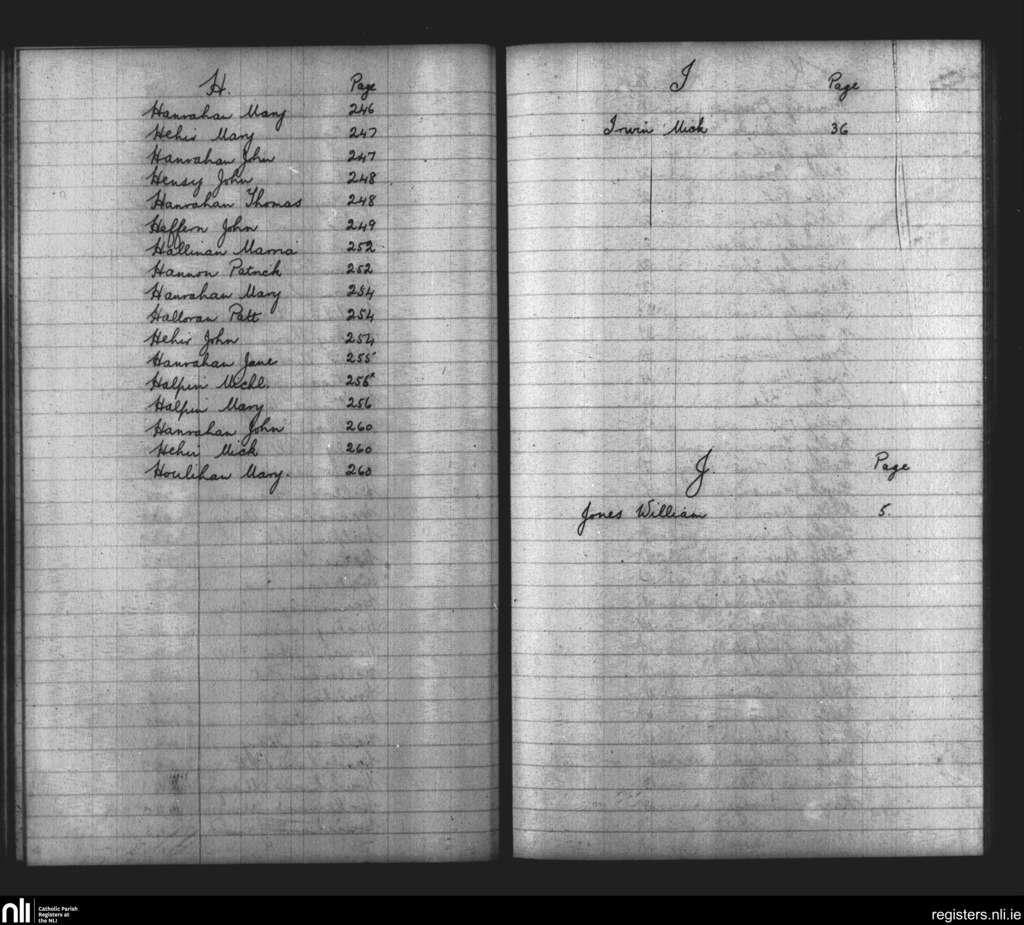 H.
Page
Hanrahan Mary 246
Hehir Mary 247
Hanrahan John 247
Hensy John 248
Hanrahan Thomas 248
Heffern John 249
Hallinan Marria 252
Hannon Patrick 252
Hanrahan Mary 254
Halloran Patt 254
Hehir John 254
Hanrahan Jane 255
Halpin Michl. 256
Halpin Mary 256
Hanrahan John 260
Hehir Mick 260
Houlihan Mary. 260
I
Page
Irwin Mick 36
J.
Page
Jones William 5.
nli
Catholic Parish
Registers at
the NLI
registers.nli.ie